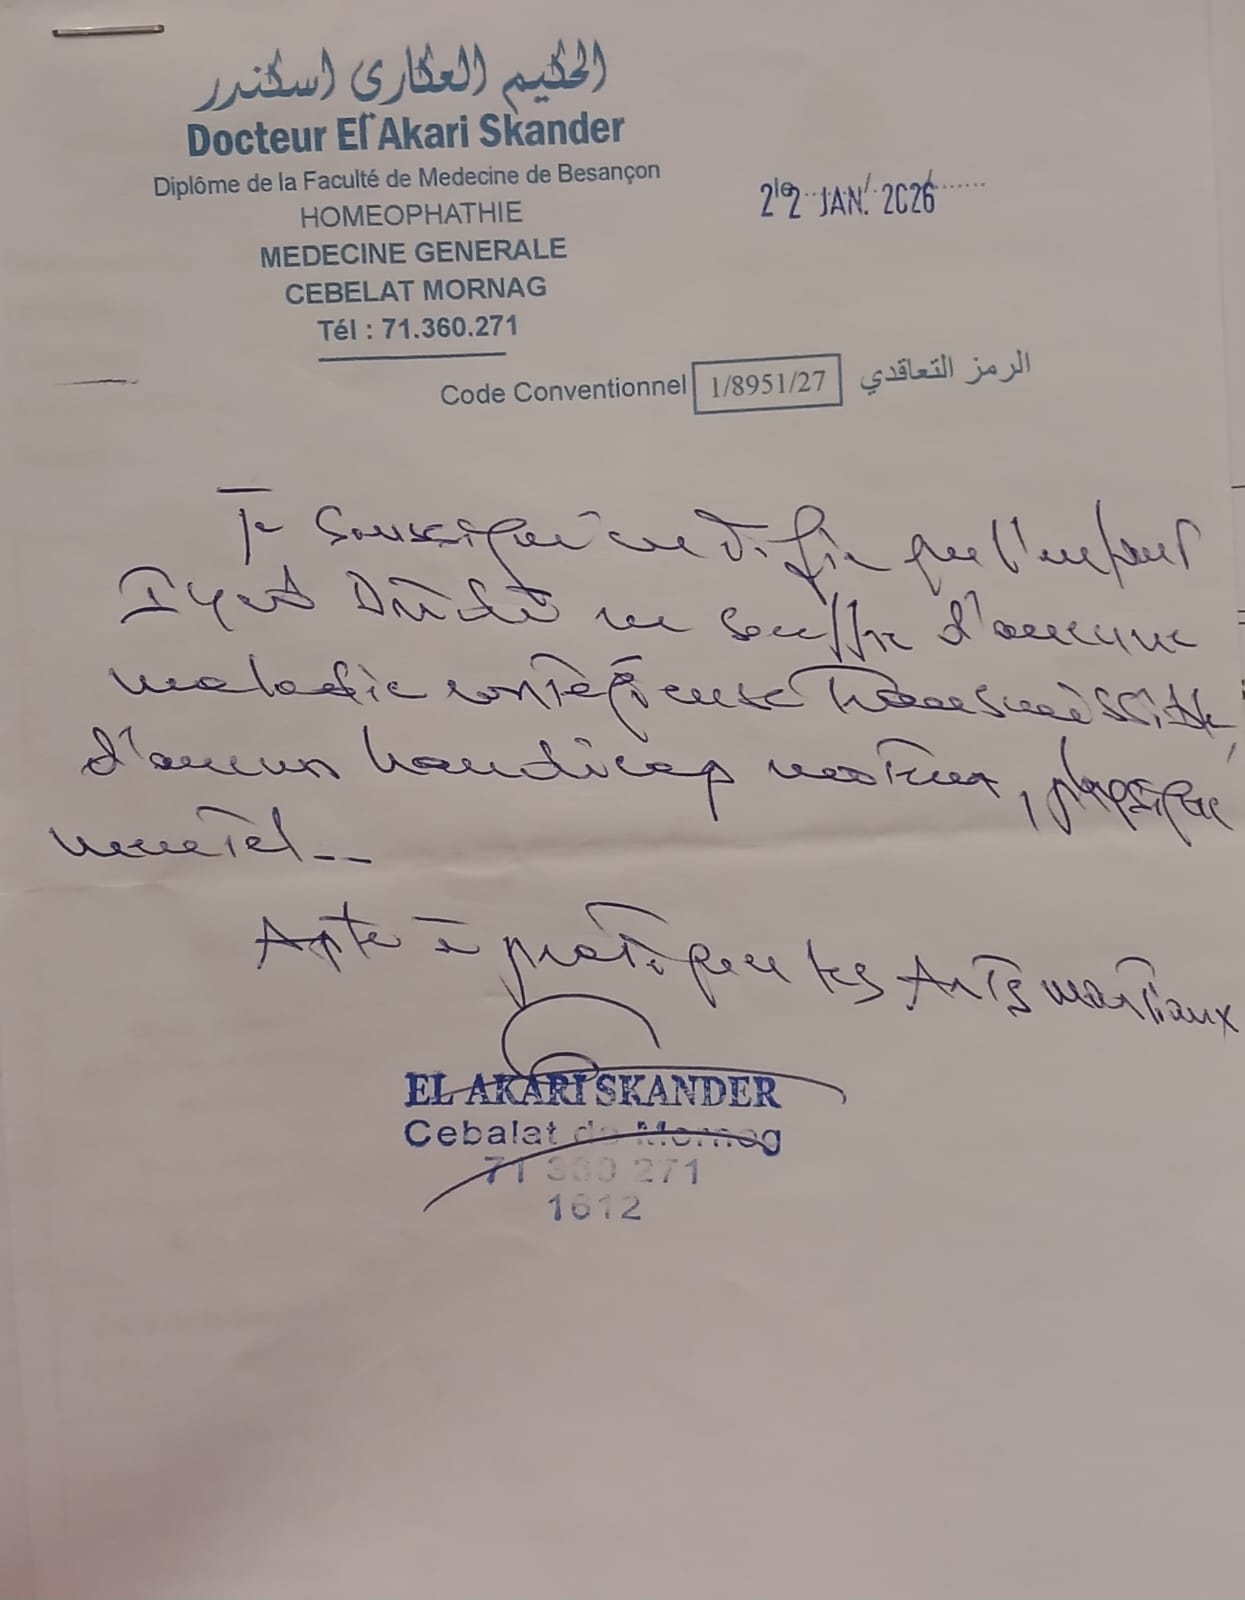 الحكيم العكاري اسكندر
Docteur El Akari Skander
Diplôme de la Faculté de Medecine de Besançon
HOMEOPHATHIE
MEDECINE GENERALE
CEBELAT MORNAG
Tél : 71.360.271
22 JAN. 2026
Code Conventionnel 1/8951/27 الرمز التعاقدي
Je soussigné certifie que l'enfant
Iyed ne souffre d'aucune
maladie contagieuse transmissible,
d'aucun handicap moteur, physique
mentel --
Apte à pratiquer les Arts martiaux
EL AKARI SKANDER
Cebalat de Mornag
71 360 271
1612